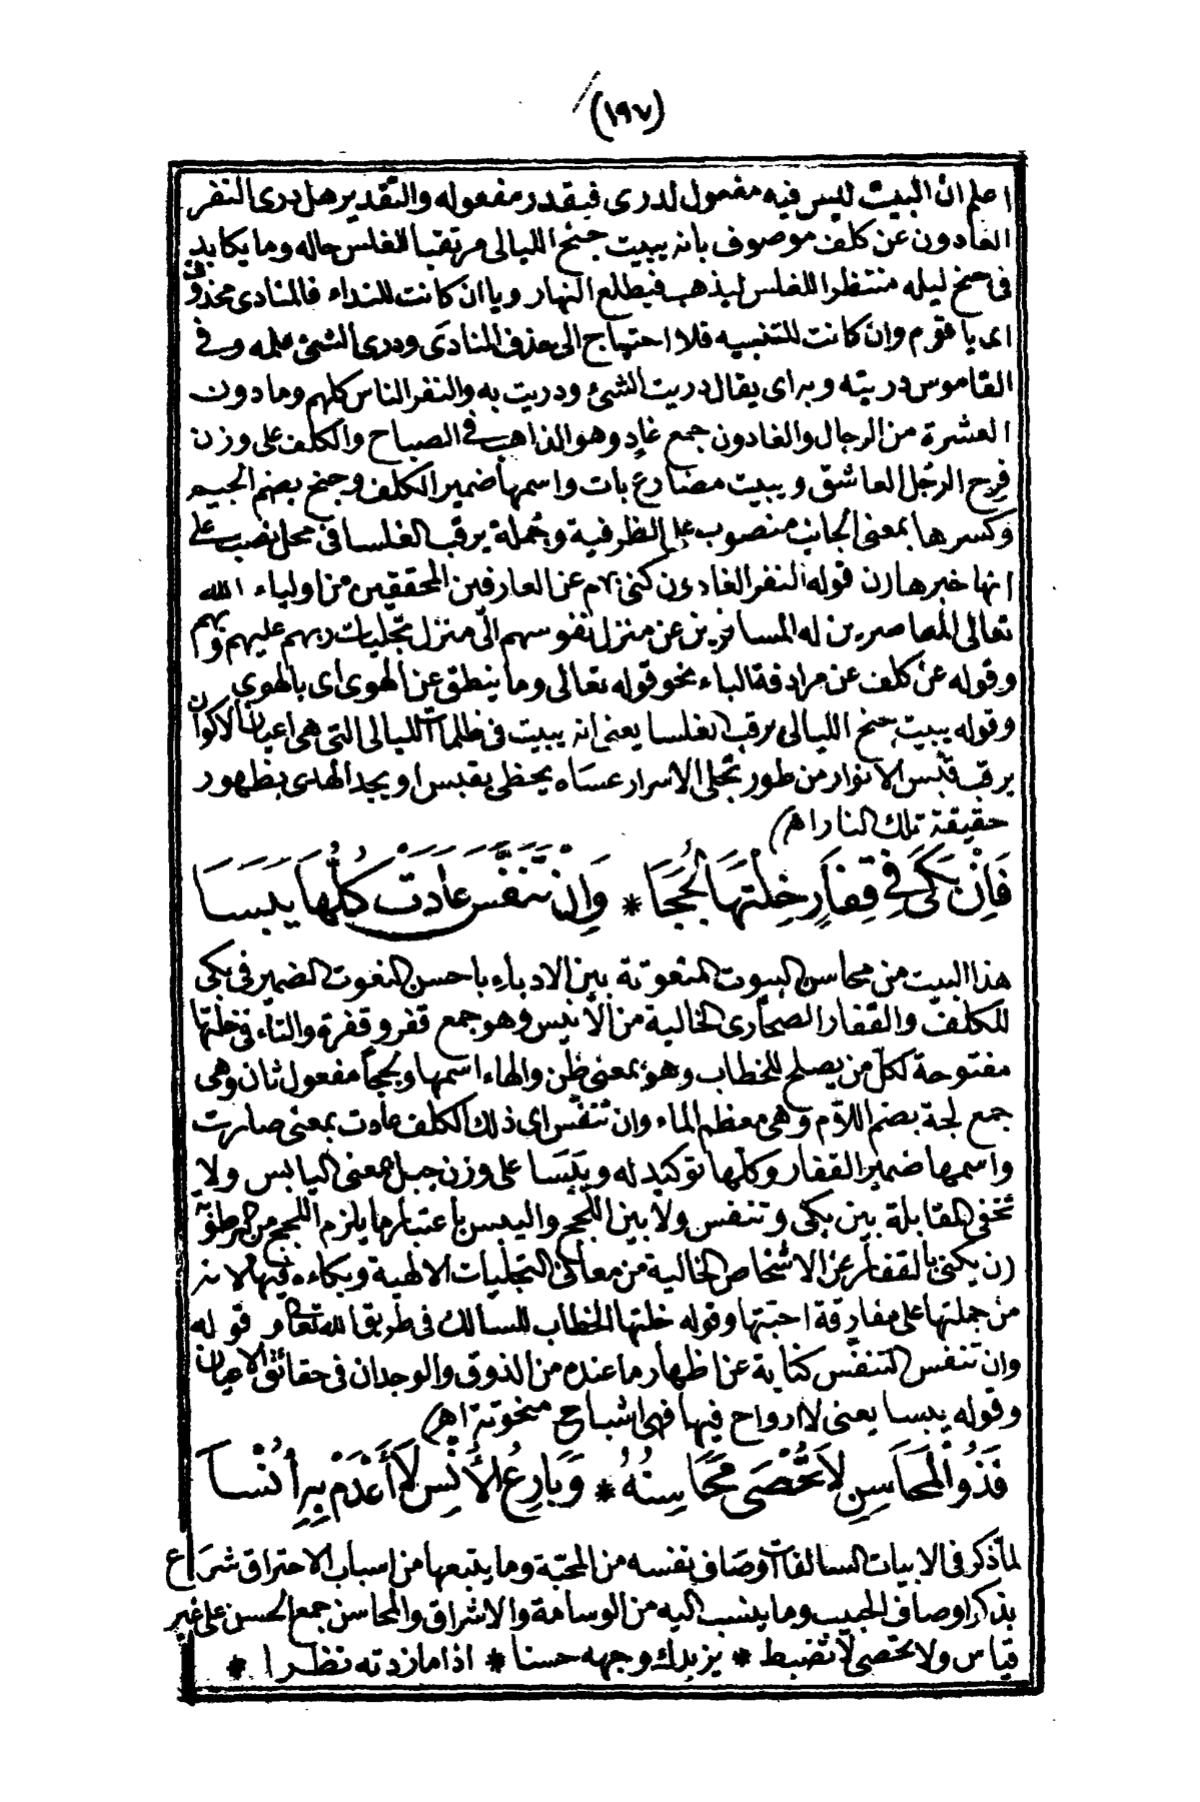 (١٩٧)
اعلم ان البيت ليس فيه مفعول لدرى فيقدر مفعوله والتقدير هل درى النفر
الغادون عن كلف موصوف بانه يبيت جنح الليالى مرتقبا للغلس حاله وما يكابد
فى جنح ليله منتظرا للغلس ليذهب فيطلع النهار ويا ان كانت للنداء فالمنادى محذوف
اى يا قوم وان كانت للتنبيه فلا احتياج الى حذف المنادى ودرى الشئ علمه وفى
القاموس دريته وبه اى يقال دريت الشئ ودريت به والنفر الناس كلهم وما دون
العشرة من الرجال والغادون جمع غادٍ وهو الذاهب فى الصباح والكلف على وزن
فرح الرجل العاشق ويبيت مضارع بات واسمها ضمير الكلف وجنح بضم الجيم
وكسرها بمعنى الجانب منصوب على الظرفية وجملة يرقب الغلسا فى محل نصب على
انها خبرها رن قوله النفر الغادون كنى بهم عن العارفين المحققين من اولياء الله
تعالى المعاصرين له المسافرين عن منزل نفوسهم الى منزل تجليات ربهم عليهم وبهم
وقوله عن كلف عن مرادفة الباء نحو قوله تعالى وما ينطق عن الهوى اى بالهوى
وقوله يبيت جنح الليالى يرقب الغلسا يعنى انه يبيت فى ظلمات الليالى التى هى اعيان الاكوان
يرقب قبس الانوار من طور تجلى الاسرار عساه يحظى بقبس او يجد الهدى بظهور
حقيقة تلك النار اهـ)
فَاِنْ بَكَى فِى قِفَارٍ خِلْتَهَا لُجَجَا * وَاِنْ تَنَفَّسَ عَادَتْ كُلُّهَا يَبَسَا
هذا البيت من محاسن البيوت المنعوتة بين الادباء باحسن النعوت الضمير فى بكى
للكلف والقفار الصحارى الخالية من الأنيس وهو جمع قفر وقفرة والتاء فى خلتها
مفتوحة لكل من يصلح للخطاب وهو بمعنى ظن والهاء اسمها ولججا مفعول ثان وهى
جمع لجة بضم اللام وهى معظم الماء وان تنفس اى ذلك الكلف عادت بمعنى صارت
واسمها ضمير القفار وكلها توكيد له ويبسا على وزن جبل بمعنى اليابس ولا
تخفى المقابلة بين بكى وتنفس ولا بين اللجج واليبس باعتبار ما يلزم اللجج من الرطوبة
رن يكنى بالقفار عن الاشخاص الخالية من معانى التجليات الالهية وبكاءه فيها لانه
من جملتها على مفارقة احبتها وقوله خلتها الخطاب للسالك فى طريق الله تعالى وقوله
وان تنفس التنفس كناية عن اظهار ما عنده من الذوق والوجدان فى حقائق الاعيان
وقوله يبسا يعنى لا ارواح فيها فهى اشباح منحوتة اهـ)
فَذُو الْمَحَاسِنِ لَا تُحْصَى مَحَاسِنُهُ * وَبَارِعُ الْأُنْسِ لَا أَعْدَمْ بِهِ أُنُسَا
لما ذكر فى الابيات السالفات اوصاف نفسه من المحبة وما يتبعها من اسباب الاحتراق شراع
بذكر اوصاف الحبيب وما ينسب اليه من الوسامة والاشراق والمحاسن جمع الحسن على غير
قياس ولا تحصى لا تضبط * يزيدك وجهه حسنا * اذا ما زدته نظرا *